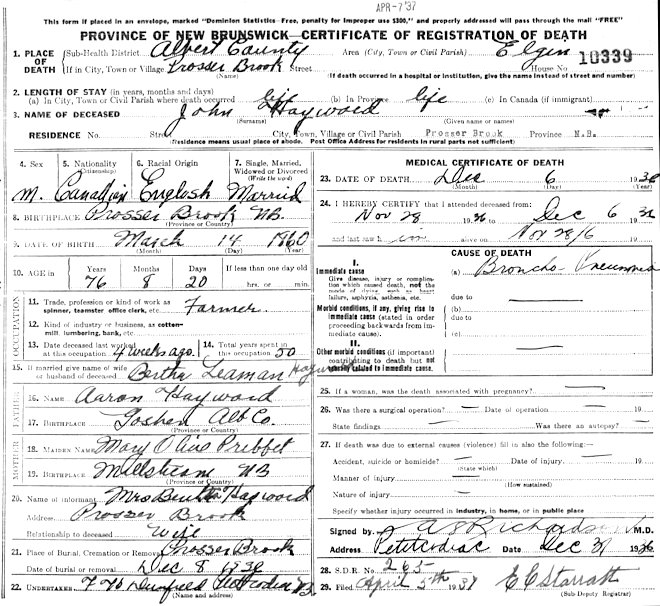 APR-7'37
This form if placed in an envelope, marked "Dominion Statistics-Free, penalty for improper use $300," and properly addressed will pass through the mail "FREE"
PROVINCE OF NEW BRUNSWICK—CERTIFICATE OF REGISTRATION OF DEATH
1. PLACE OF DEATH Sub-Health District Albert County Area (City, Town or Civil Parish) Elgin
If in City, Town or Village Prosser Brook Street House No. 10339
(Name) (If death occurred in a hospital or institution, give the name instead of street and number)
2. LENGTH OF STAY (in years, months and days)
(a) In City, Town or Civil Parish where death occurred life (b) In Province life (c) In Canada (if immigrant)
3. NAME OF DECEASED John Hayward
(Surname) (Given name or names)
RESIDENCE No. Street City, Village or Civil Parish Prosser Brook Province N.B.
(Residence means usual place of abode. Post Office Address for residents in rural parts not sufficient)
4. Sex 5. Nationality (Citizenship) 6. Racial Origin 7. Single, Married, Widowed or Divorced (Write the word)
M. Canadian English Married
8. BIRTHPLACE Prosser Brook NB.
(Province or Country)
9. DATE OF BIRTH March 14 1860
(Month) (Day) (Year)
10. AGE in Years Months Days If less than one day old
76 8 20 hrs. or min.
OCCUPATION
11. Trade, profession or kind of work as spinner, teamster office clerk, etc. Farmer.
12. Kind of industry or business, as cotton-mill, lumbering, bank, etc.
13. Date deceased last worked at this occupation 4 weeks ago. 14. Total years spent in this occupation 50
15. If married give name of wife or husband of deceased Bertha Leaman Hayward
FATHER
16. Name Aaron Hayward
17. BIRTHPLACE Goshen Alb Co.
(Province or Country)
MOTHER
18. MAIDEN NAME Mary Olive
19. BIRTHPLACE Millstream NB
(Province or Country)
20. Name of informant Mrs Bertha Hayward
Address Prosser Brook
Relationship to deceased Wife
21. Place of Burial, Cremation or Removal Prosser Brook
Date of burial or removal Dec 8 1936
22. UNDERTAKER Petitcodiac NB
(Name and address)
MEDICAL CERTIFICATE OF DEATH
23. DATE OF DEATH Dec 6 1936
(Month) (Day) (Year)
24. I HEREBY CERTIFY that I attended deceased from:
Nov 28 1936 to Dec 6 36
and last saw h im alive on Nov 28/6 19
CAUSE OF DEATH
I.
Immediate cause (a) Broncho-Pneumonia
Give disease, injury or complication which caused death, not the mode of dying, such as heart failure, asphyxia, asthenia, etc.
due to
Morbid conditions, if any, giving rise to immediate cause (stated in order proceeding backwards from immediate cause). (b)
due to
(c)
II.
Other morbid conditions (if important) contributing to death but not causally related to immediate cause.
25. If a woman, was the death associated with pregnancy?
26. Was there a surgical operation? Date of operation 19
State findings Was there an autopsy?
27. If death was due to external causes (violence) fill in also the following:—
Accident, suicide or homicide? Date of injury 19
(State which)
Manner of injury
(How sustained)
Nature of injury
Specify whether injury occurred in industry, in home, or in public place
Signed by Richardson M.D.
Address Petitcodiac Date Dec 31 1936
28. S.D.R. No. 265
29. Filed April 5th 1937 E E Starratt
(Sub-Deputy Registrar)